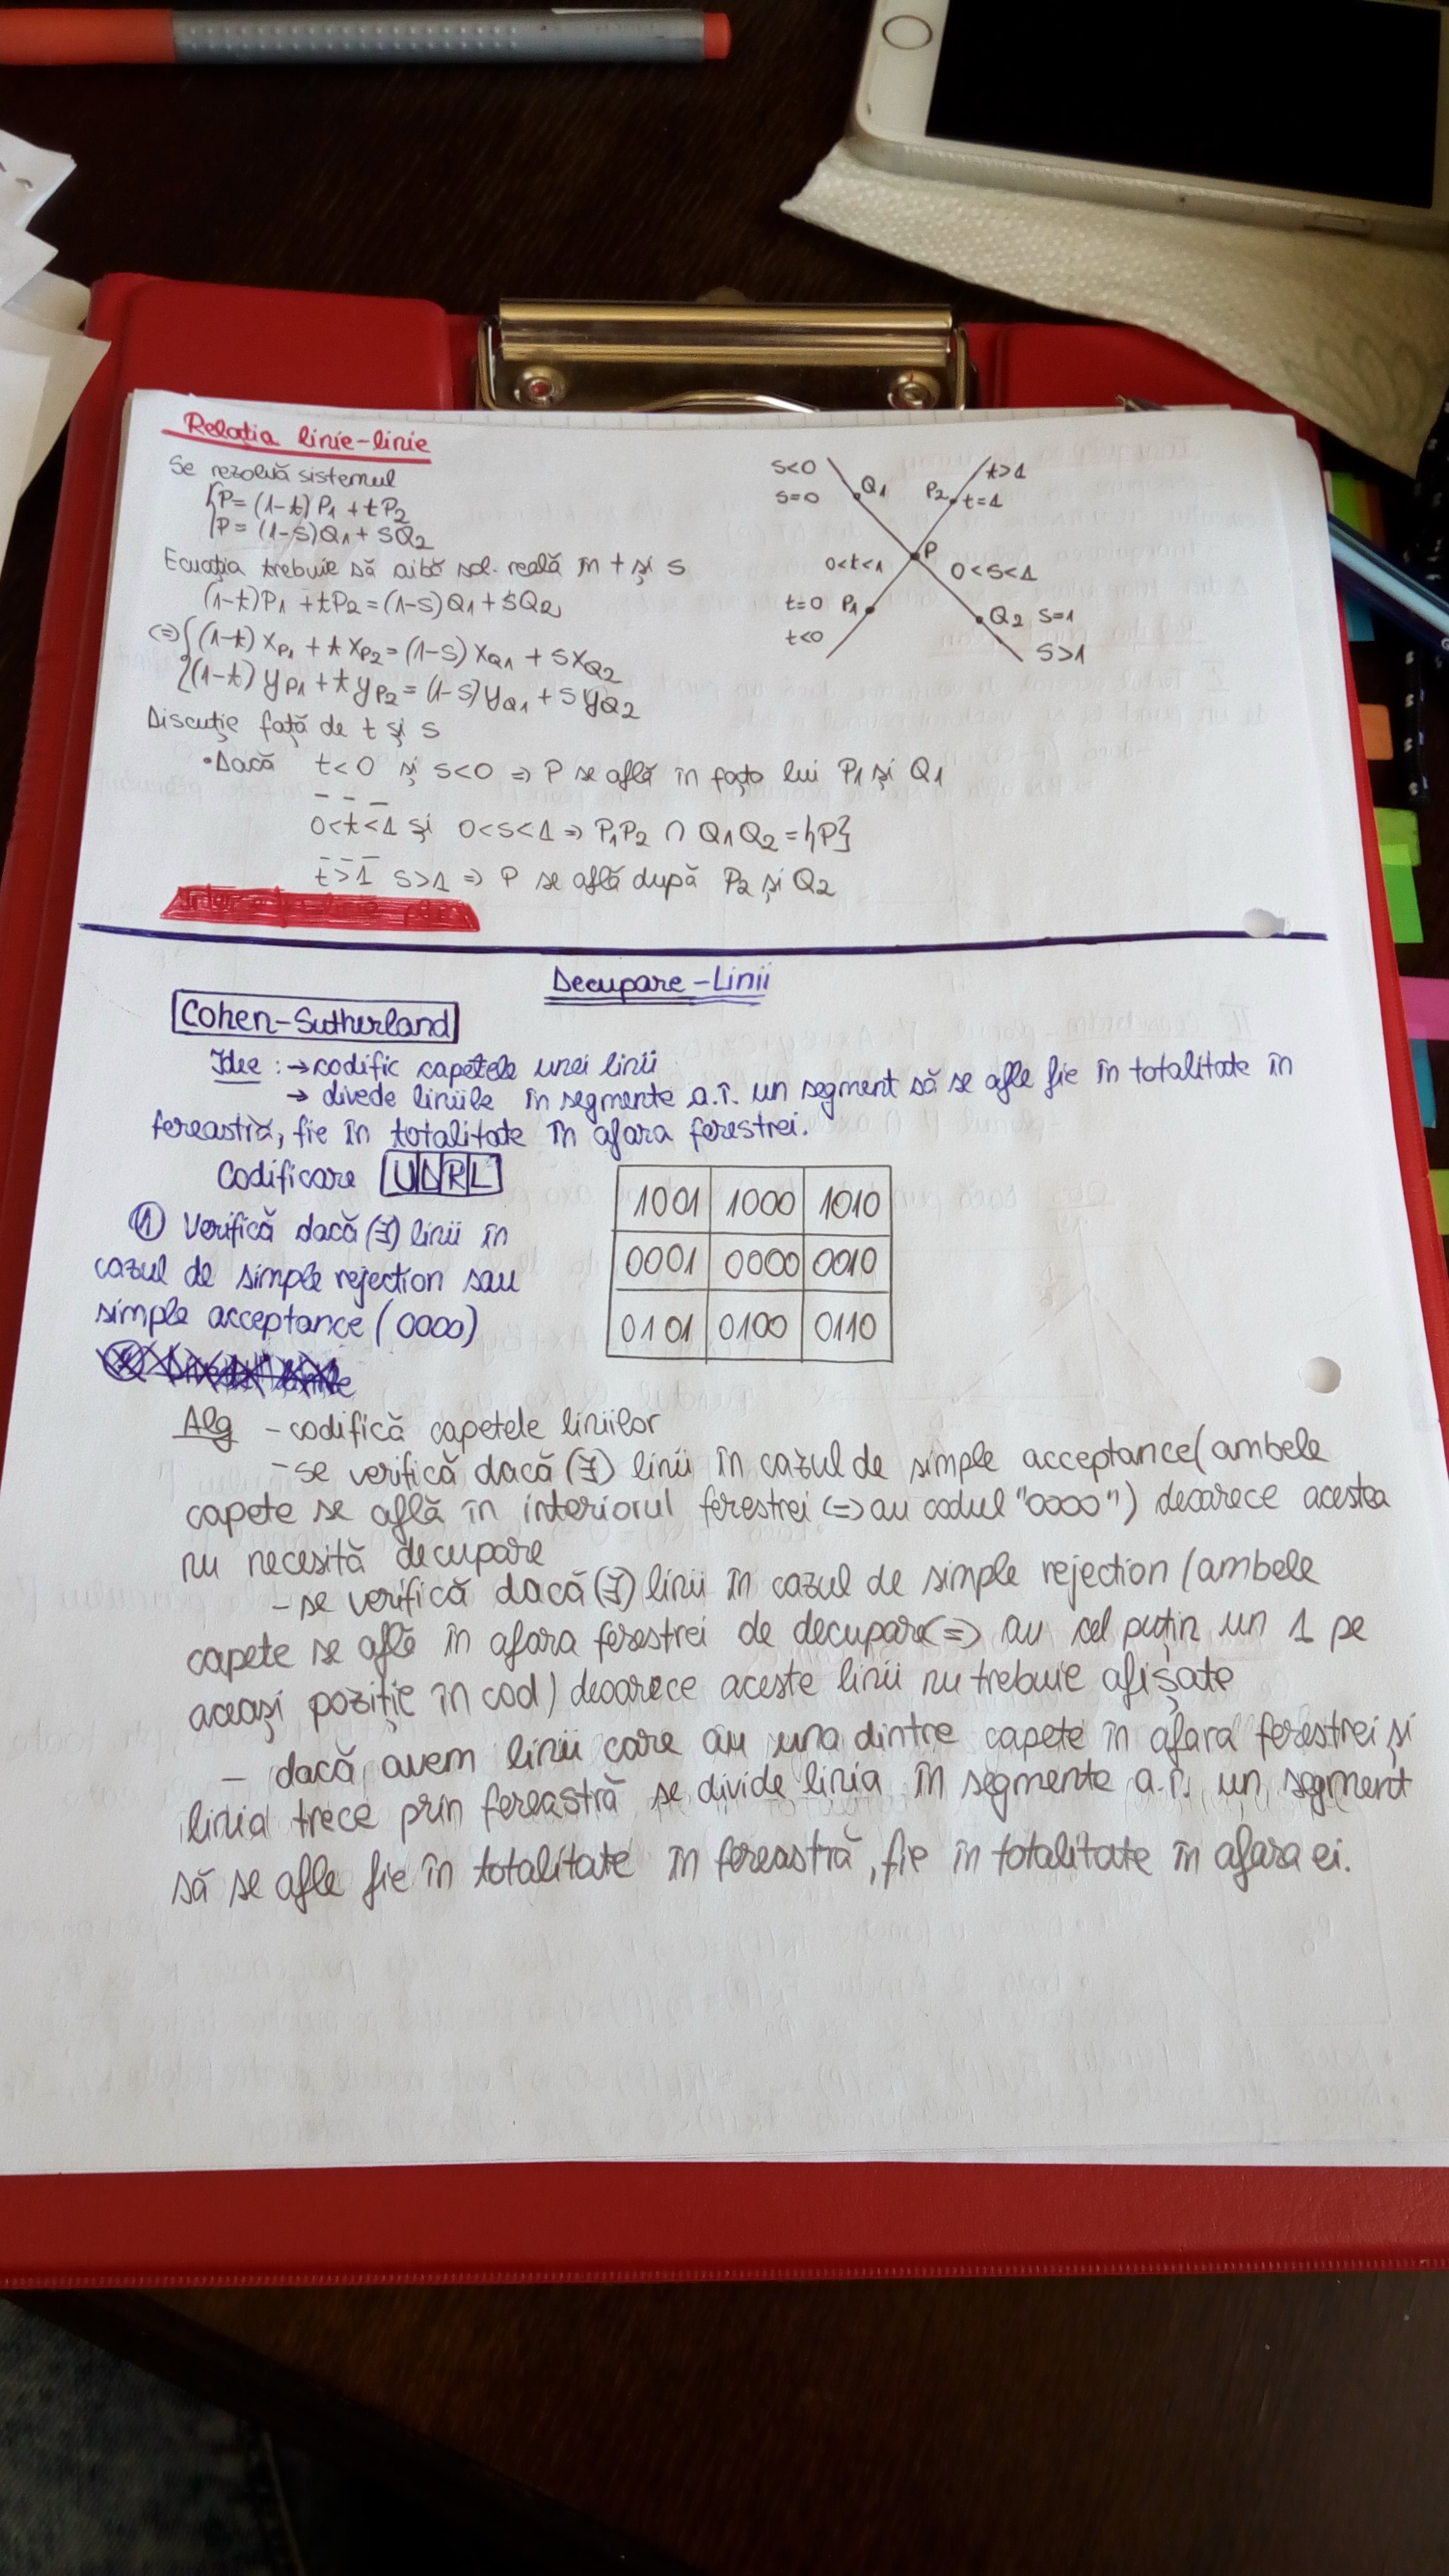 Relația linie-linie
Se rezolvă sistemul
{P = (1-t) P1 + tP2
P = (1-s)Q1 + sQ2
Ecuația trebuie să aibă sol. reală în t și s
(1-t)P1 + tP2 = (1-s)Q1 + sQ2
(=) { (1-t) xP1 + t xP2 = (1-s) xQ1 + s xQ2
(1-t) yP1 + t yP2 = (1-s) yQ1 + s yQ2
Discuție față de t și s
• Dacă t<0 și s<0 => P se află în fața lui P1 și Q1
- - -
0<t<1 și 0<s<1 => P1P2 ∩ Q1Q2 = {P}
- - -
t>1 s>1 => P se află după P2 și Q2
s<0
s=0
Q1
P2
t>1
t=1
0<t<1
P
0<s<1
t=0 P1
t<0
Q2 s=1
s>1
Decupare-Linii
Cohen-Sutherland
Idee : → codific capetele unei linii
→ divede liniile în segmente a.î. un segment să se afle fie în totalitate în
fereastră, fie în totalitate în afara ferestrei.
Codificare U D R L
1001 1000 1010
0001 0000 0010
0101 0100 0110
① Verifică dacă (∃) linii în
cazul de simple rejection sau
simple acceptance (0000)
Alg - codifică capetele liniilor
- se verifică dacă (∃) linii în cazul de simple acceptance (ambele
capete se află în interiorul ferestrei (=) au codul "0000") deoarece acestea
nu necesită decupare
- se verifică dacă (∃) linii în cazul de simple rejection (ambele
capete se află în afara ferestrei de decupare (=) au cel puțin un 1 pe
aceași poziție în cod) deoarece aceste linii nu trebuie afișate
- dacă avem linii care au una dintre capete în afara ferestrei și
linia trece prin fereastră se divide linia în segmente a.î. un segment
să se afle fie în totalitate în fereastră, fie în totalitate în afara ei.